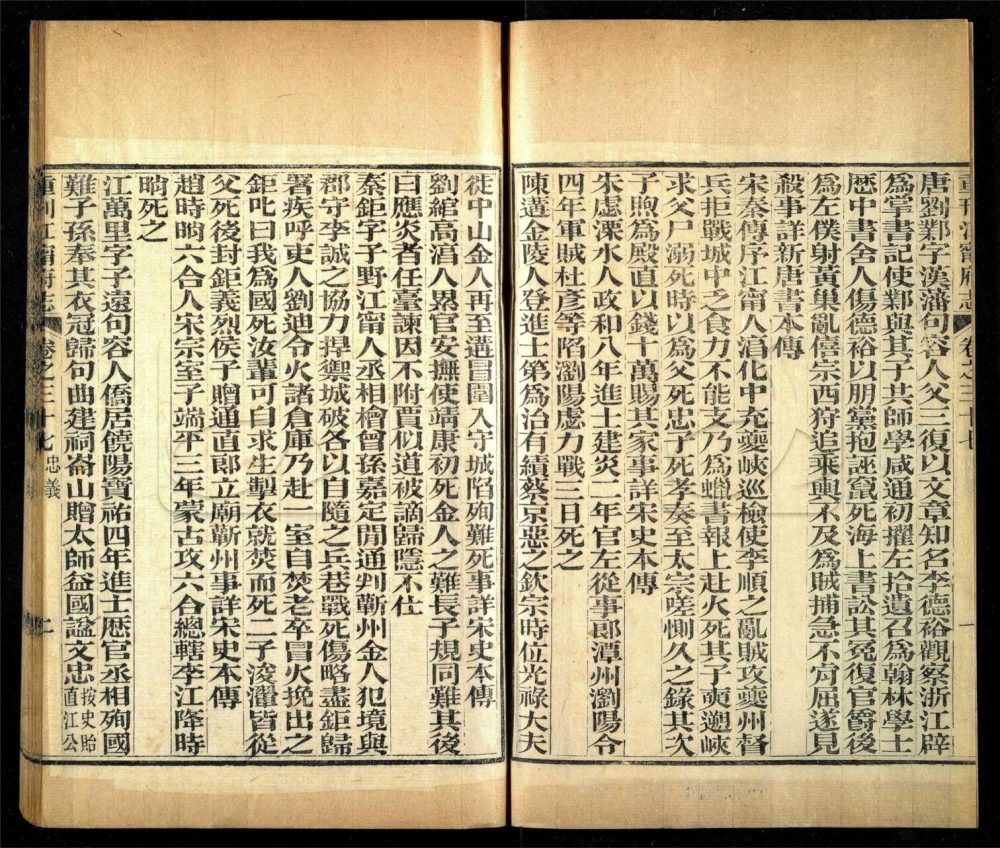 重刊江甯府志 卷之三十七 一
唐劉鄴字漢藩句容人父三復以文章知名李德裕觀察浙江辟
爲掌書記使鄴與其子共師學咸通初擢左拾遺召爲翰林學士
歷中書舍人傷德裕以朋黨抱誣竄死海上書訟其冤復官爵後
爲左僕射黃巢亂僖宗西狩追乘輿不及爲賊捕急不肎屈遂見
殺事詳新唐書本傳
宋秦傳序江甯人淳化中充夔峽巡檢使李順之亂賊攻夔州督
兵拒戰城中乏食力不能支乃爲蠟書報上赴火死其子奭遡峽
求父尸溺死時以爲父死忠子死孝奏至太宗嗟惻久之錄其次
子煦爲殿直以錢十萬賜其家事詳宋史本傳
朱虙溧水人政和八年進士建炎二年官左從事郞潭州瀏陽令
四年軍賊杜彥等陷瀏陽虙力戰三日死之
陳遘金陵人登進士第爲治有績蔡京惡之欽宗時位光祿大夫
徙中山金人再至遘冒圍入守城陷殉難死事詳宋史本傳
劉綰高淳人累官安撫使靖康初死金人之難長子規同難其後
曰應炎者任臺諫因不附賈似道被謫歸隱不仕
秦鉅字子野江甯人丞相檜曾孫嘉定閒通判蘄州金人犯境與
郡守李誠之協力捍禦城破各以自隨之兵巷戰死傷略盡鉅歸
署疾呼吏人劉迪令火諸倉庫乃赴一室自焚老卒冒火挽出之
鉅叱曰我爲國死汝輩可自求生掣衣就焚而死二子浚瀈皆從
父死後封鉅義烈侯子贈通直郞立廟蘄州事詳宋史本傳
趙時晌六合人宋宗室子端平三年蒙古攻六合總轄李江降時
晌死之
江萬里字子遠句容人僑居饒陽寶祐四年進士歷官丞相殉國
難子孫奉其衣冠歸句曲建祠崙山贈太師益國諡文忠按史貽
直江公
重刊江甯府志 卷之三十七 忠義 二